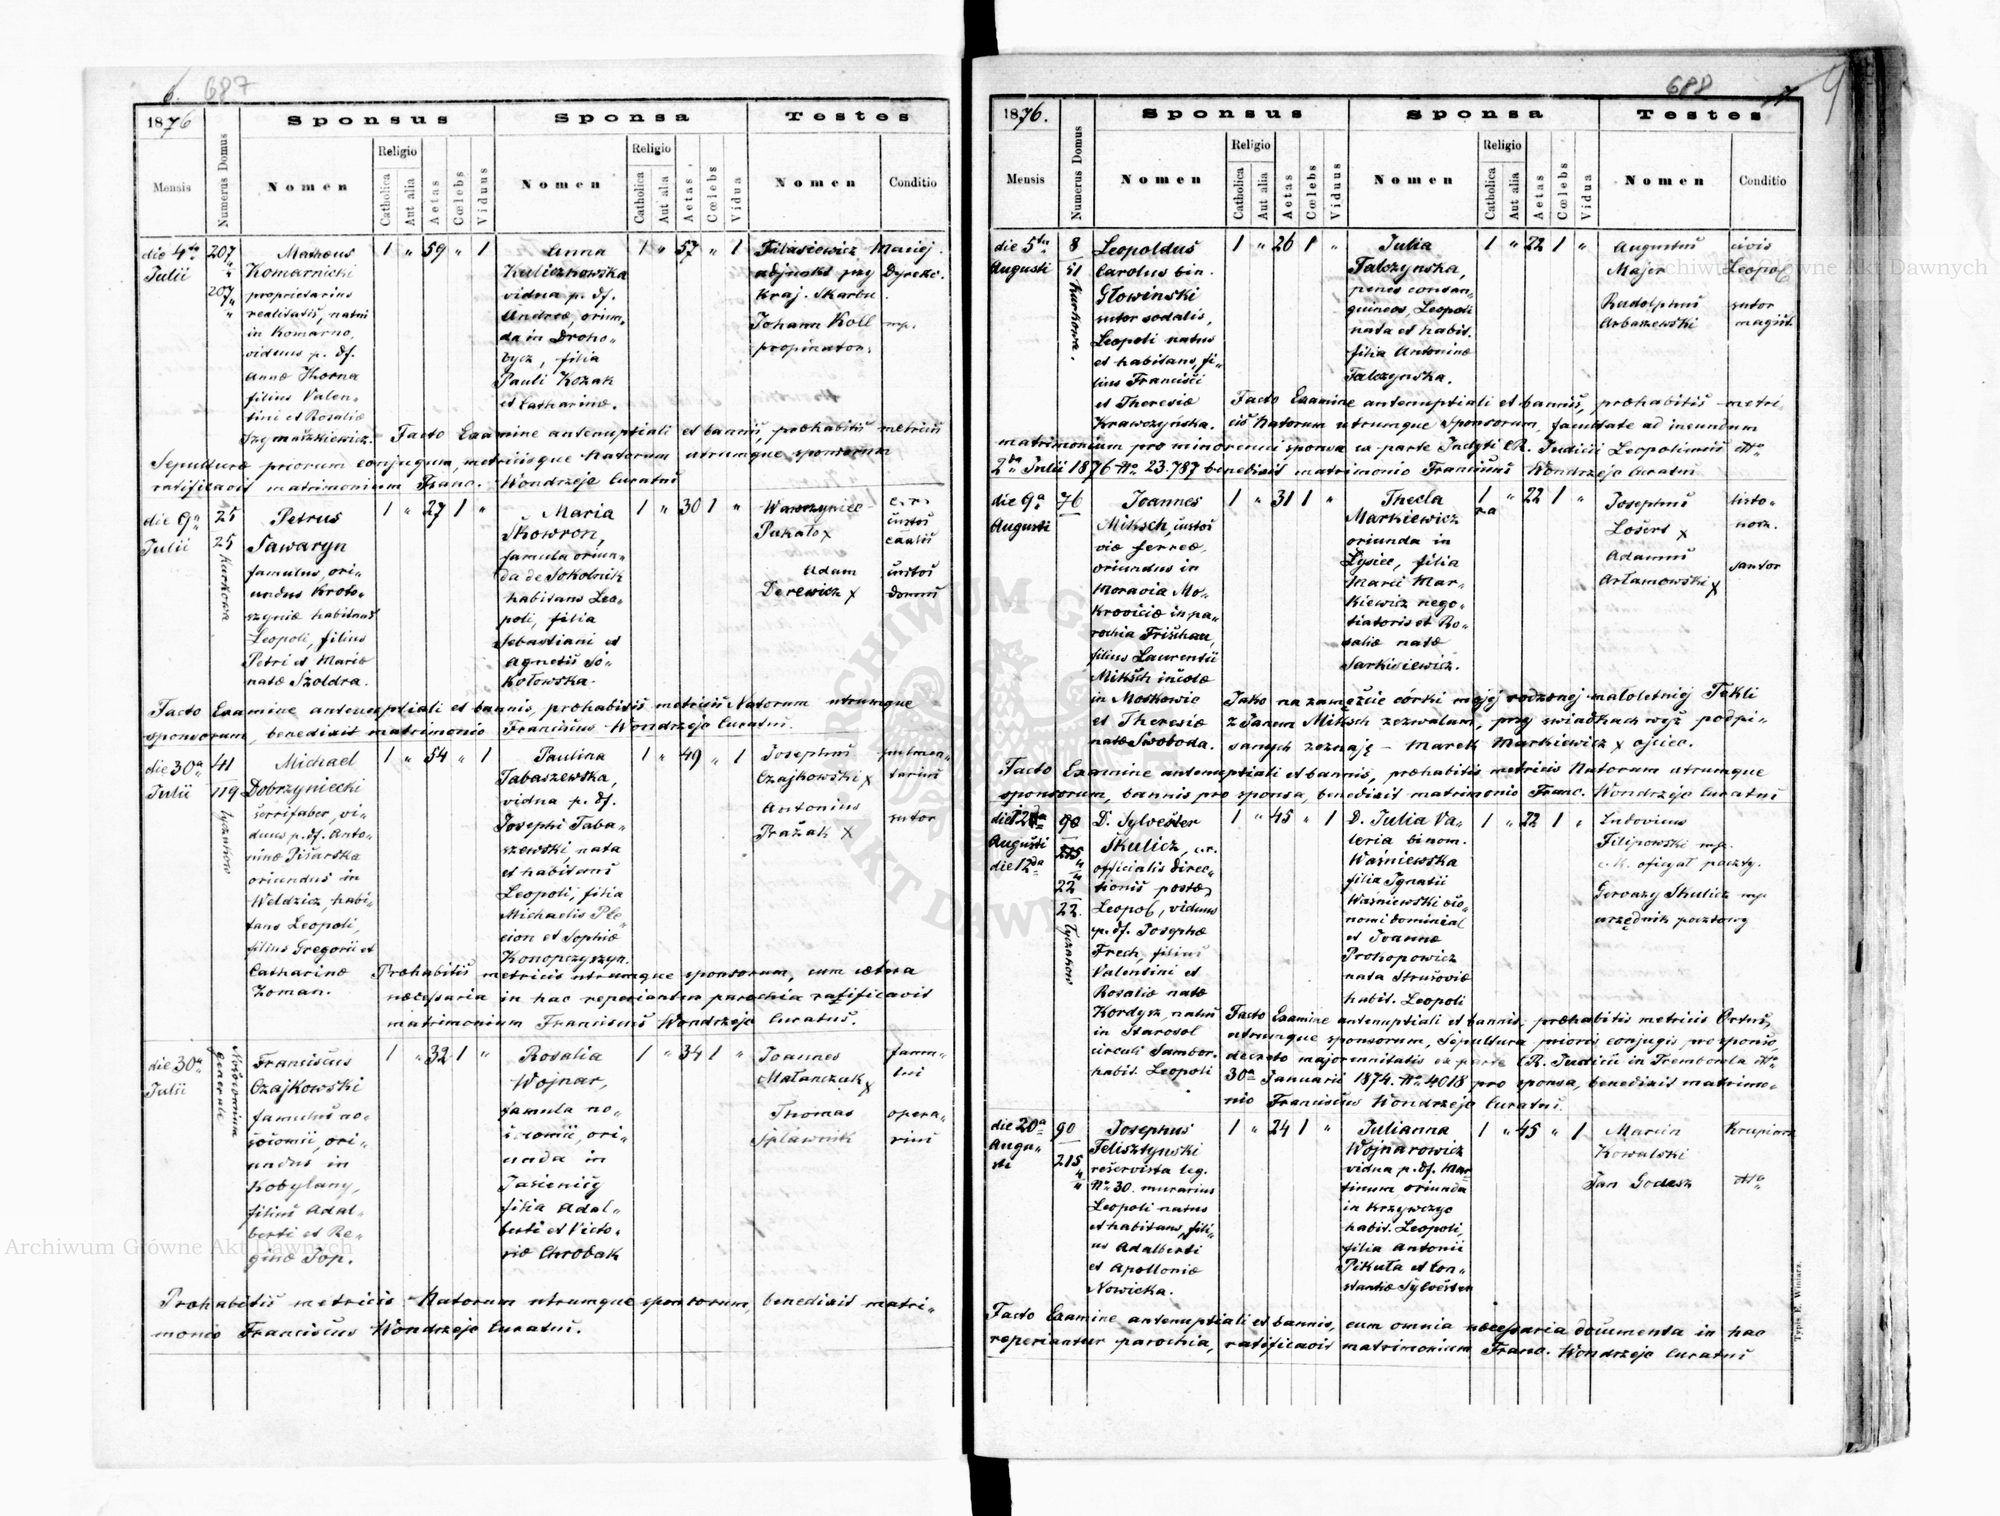 6. 687
1876 Sponsus Sponsa Testes
Mensis Numerus Domus Nomen Religio Catholica Aut alia Aetas Cœlebs Viduus Nomen Religio Catholica Aut alia Aetas Cœlebs Vidua Nomen Conditio
die 4ta Julii
207 207
Matheus
Komarnicki
proprietarius
realitatis, natus
in Komarno,
viduus p. df.
Annæ Horna
filius Valen-
tini et Rosaliæ
Szymaszkiewicz.
1 " 59 " 1
Anna
Kuliczkowska
vidua p. df.
Andreæ, oriun-
da in Droho-
bycz, filia
Pauli Kozak
et Catharinæ.
1 " 57 " 1
Filasiewicz Maciej
adjunkt przy Dyrekc.
Kraj. Skarbu.
Johann Koll mp.
propinator.
Facto Examine antenuptiali et bannis, præhabitis metricis
Sepulturæ priorum conjugum, metricisque Natorum utrumque sponsorum
ratificavit matrimonium Franc. Wondrzejc Curatus
die 9a Julii
25 25 Kurkowa
Petrus
Sawaryn
famulus, ori-
undus Kroto-
szyniæ habitans
Leopoli, filius
Petri et Mariæ
natæ Szoldra.
1 " 27 1 "
Maria
Skowron,
famula oriun-
da de Sokolnik
habitans Leo-
poli, filia
Sebastiani et
Agnetis So-
kołowska.
1 " 30 1 "
Wawrzyniec
Pukało x
Adam
Derewicz x
c. r. custos
custos
domus
Facto Examine antenuptiali et bannis, præhabitis metricis Natorum utrumque
sponsorum, benedixit matrimonio Franciscus Wondrzejc Curatus.
die 30a Julii
41 119 Łyczaków
Michael
Dobrzyniecki
serrifaber, vi-
duus p. df. Anto-
ninæ Pisarska
oriundus in
Weldzicz, habi-
tans Leopoli,
filius Gregorii et
Catharinæ
Zoman.
1 " 54 " 1
Paulina
Tabaszewska,
vidua p. df.
Josephi Taba-
szewski, nata
et habitans
Leopoli, filia
Michaelis Ple-
cion et Sophiæ
Konopczyszyn.
1 " 49 " 1
Josephus
Czajkowski x
Antonius
Prażak x
pulmen-
tarius
sutor
Præhabitis metricis utrumque sponsorum, cum cætera
necessaria in hac reperiantur parochia ratificavit
matrimonium Franciscus Wondrzejc Curatus.
die 30a Julii
Nosocomium generale
Franciscus
Czajkowski
famulus no-
socomii, ori-
undus in
Kobylany,
filius Adal-
berti et Re-
ginæ Sop.
1 " 32 1 "
Rosalia
Wojnar,
famula no-
socomii, ori-
unda in
Jasienicy
filia Adal-
berti et Victo-
riæ Chrobak
1 " 34 1 "
Joannes
Matanczuk x
Thomas
Spławnik
famu-
lus
opera-
rius
Præhabitis metricis Natorum utrumque sponsorum, benedixit matri-
monio Franciscus Wondrzejc Curatus.
688 7. 9
1876. Sponsus Sponsa Testes
Mensis Numerus Domus Nomen Religio Catholica Aut alia Aetas Cœlebs Viduus Nomen Religio Catholica Aut alia Aetas Cœlebs Vidua Nomen Conditio
die 5ta Augusti
8 51 Kurkowa.
Leopoldus
Carolus bin.
Głowinski
sutor sodalis,
Leopoli natus
et habitans, fi-
lius Francisci
et Theresiæ
Krawczyńska.
1 " 26 1 "
Julia
Talczynska,
penes consan-
guineos, Leopoli
nata et habit.
filia Antoninæ
Talczynska.
1 " 22 1 "
Augustus
Majer
Rudolphus
Arbaszewski
civis
Leopol
sutor
magist.
Facto Examine antenuptiali et bannis, præhabitis metri-
cis Natorum utrumque Sponsorum, facultate ad ineundum
matrimonium pro minorenni sponsa ex parte Inclyti C. R. Judicii Leopoliensis dto
2da Julii 1876 No. 23.787 benedixit matrimonio Franciscus Wondrzejc Curatus
die 9a Augusti
76
Joannes
Miksch, custos
viæ ferreæ,
oriundus in
Moravia Mo-
krovicie in pa-
rochia Frischau,
filius Laurentii
Miksch incolæ
in Moskowic
et Theresiæ
natæ Swoboda.
1 " 31 1 "
Thecla
Markiewicz
oriunda in
Lysiec, filia
Marci Mar-
kiewicz nego-
tiatoris et Ro-
saliæ natæ
Sarkisiewicz.
1 ra " 22 1 "
Josephus
Losert x
Adamus
Artamowski x
listo-
nosz.
sartor
Jako na zamęście córki mojej rodzonej małoletniej Tekli
z Panem Miksch zezwalam, przy świadkach wyż podpi-
sanych zeznaję – Marek Markiewicz x ojciec.
Facto Examine antenuptiali et bannis, præhabitis metricis Natorum utrumque
sponsorum, bannis pro sponsa, benedixit matrimonio Franc. Wondrzejc Curatus
die 12da Augusti die 12da
90 215 22 22. Łyczaków
D. Sylvester
Skulicz, c. r.
officialis direc-
tionis postæ
Leopol, viduus
p. df. Josephæ
Frech, filius
Valentini et
Rosaliæ natæ
Kordysz, natus
in Starosol
circuli Sambor.
habit. Leopoli
1 " 45 " 1
D. Julia Va-
leria binom.
Waśniewska
filia Ignatii
Waśniewski œco-
nomi dominial
et Joannæ
Prohopowicz
nata Strusoviæ
habit. Leopoli
1 " 22 1 "
Ludovicus
Filipowski mp.
c. k. oficyał poczty.
Gerwazy Skulicz mp
urzędnik pocztowy
Facto Examine antenuptiali et bannis, præhabitis metricis Ortus,
utrumque sponsorum, Sepulturæ prioris conjugis pro sponso,
decreto majorennitatis ex parte C. R. Judicii in Trembowla dto
30a Januarii 1874. No. 4018 pro sponsa, benedixit matrimo-
nio Franciscus Wondrzejc Curatus.
die 20a Augu-sti
90 215
Josephus
Felisztynski
reservista leg.
No. 30. murarius
Leopoli natus
et habitans, fili-
us Adalberti
et Apolloniæ
Nowicka.
1 " 24 1 "
Julianna
Wojnarowicz
vidua p. df. Mar-
tinum, oriunda
in Krzywczyc
habit. Leopoli,
filia Antonii
Pikuła et Con-
stantiæ Sylvester
1 " 45 " 1
Marcin
Kowalski
Jan Godesz
Krupiarz
dto
Facto Examine antenuptiali et bannis, cum omnia necessaria documenta in hac
reperiantur parochia, ratificavit matrimonium Franc. Wondrzejc Curatus
Typis E. Winiarz.
Archiwum Główne Akt Dawnych
Archiwum Główne Akt Dawnych
ARCHIWUM G
AKT DAWN